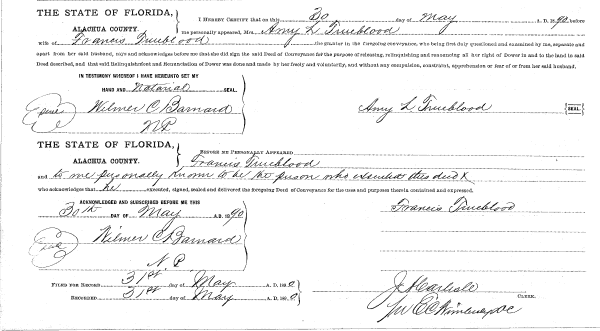 THE STATE OF FLORIDA,
ALACHUA COUNTY.
I HEREBY CERTIFY that on this 30 day of May A. D. 1890, before
me personally appeared, Mrs. Amy L Trueblood
wife of Francis Trueblood the grantor in the foregoing conveyance, who being first duly questioned and examined by me, separate and
apart from her said husband, now and acknowledges before me that she did sign the said Deed of Conveyance for the purpose of releasing, relinquishing and renouncing all her right of Dower in and to the land in said
Deed described, and that said Relinquishment and Renunciation of Dower was done and made by her freely and voluntarily, and without any compulsion, constraint, apprehension or fear of or from her said husband.
IN TESTIMONY WHEREOF I HAVE HEREUNTO SET MY
HAND AND Notarial SEAL.
Wilmer C Barnard
NP
Amy L Trueblood SEAL.
THE STATE OF FLORIDA,
ALACHUA COUNTY.
BEFORE ME PERSONALLY APPEARED
Francis Trueblood
and to me personally known to be the person who executed this deed X
who acknowledges that he executed, signed, sealed and delivered the foregoing Deed of Conveyance for the uses and purposes therein contained and expressed.
ACKNOWLEDGED AND SUBSCRIBED BEFORE ME THIS
30th DAY OF May A. D. 1890
Francis Trueblood
Wilmer C Barnard
N P
FILED FOR RECORD 31st day of May A. D. 1890
RECORDED 31st day of May A. D. 1890
J H Carlisle
CLERK.
DC